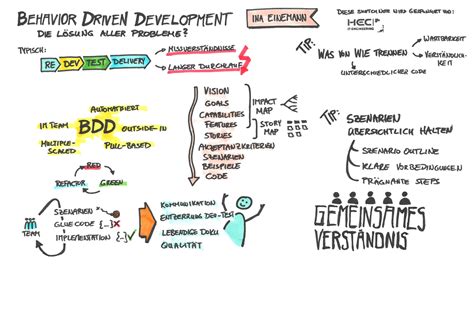 BEHAVIOR DRIVEN DEVELOPMENT
DIE LÖSUNG ALLER PROBLEME?
INA EINEMANN
DIESE SKETCHNOTE WIRD GESPONSERT VON
HEC
IT-ENGINEERING
TYPISCH:
RE DEV TEST DELIVERY
MISSVERSTÄNDNISSE
LANGER DURCHLAUF
TIP:
WAS VON WIE TRENNEN
WARTBARKEIT
VERSTÄNDLICHKEIT
UNTERSCHIEDLICHER CODE
AUTOMATISIERT
IM TEAM
BDD
OUTSIDE-IN
MULTIPLE-
SCALED
PULL-BASED
RED
REFACTOR
GREEN
VISION
GOALS
CAPABILITIES
FEATURES
STORIES
AKZEPTANZKRITERIEN
SZENARIEN
BEISPIELE
CODE
IMPACT
MAP
STORY
MAP
TIP:
SZENARIEN
ÜBERSICHTLICH HALTEN
SZENARIO OUTLINE
KLARE VORBEDINGUNGEN
PRÄGNANTE STEPS
TEAM
SZENARIEN
GLUE CODE {...}
IMPLEMENTATION {...}
KOMMUNIKATION
ENTZERRUNG DEV-TEST
LEBENDIGE DOKU
QUALITÄT
GEMEINSAMES
VERSTÄNDNIS